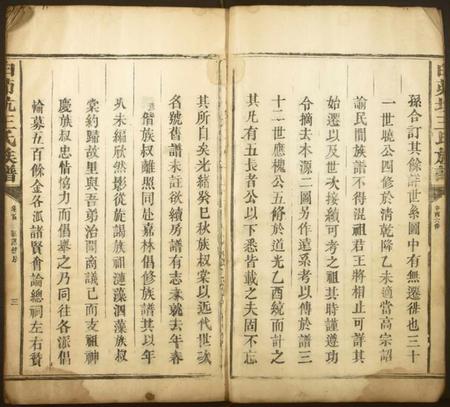 孫合訂其餘詳世系圖中有無遷徙也三十
一世曉公四修於清乾隆乙未適當高宗詔
諭民間族譜不得混祖君王將相止可詳其
始遷以及世次接續可考之祖其時謹遵功
令摘去本源二圖另作遠系考以傳於譜三
十二世應槐公五脩於道光乙酉統而計之
其凡有五長者公以下悉皆載之夫固不忘
其所自矣光緒癸巳秋族叔棠以近代世次
名號舊譜未註欲續房譜有志未就去年春
偕族叔離照同赴嘉林倡修族譜其以年
久未編欣然影從旋謁族祖漣藻泗藻族叔
棠約歸故里與吾弟治閶商議已而支祖神
慶族叔忠恬協力而倡舉之乃同往各派倡
輪募五百餘金各派諸賢會論總祠左右贊
白茆坑王氏族譜
卷首
三